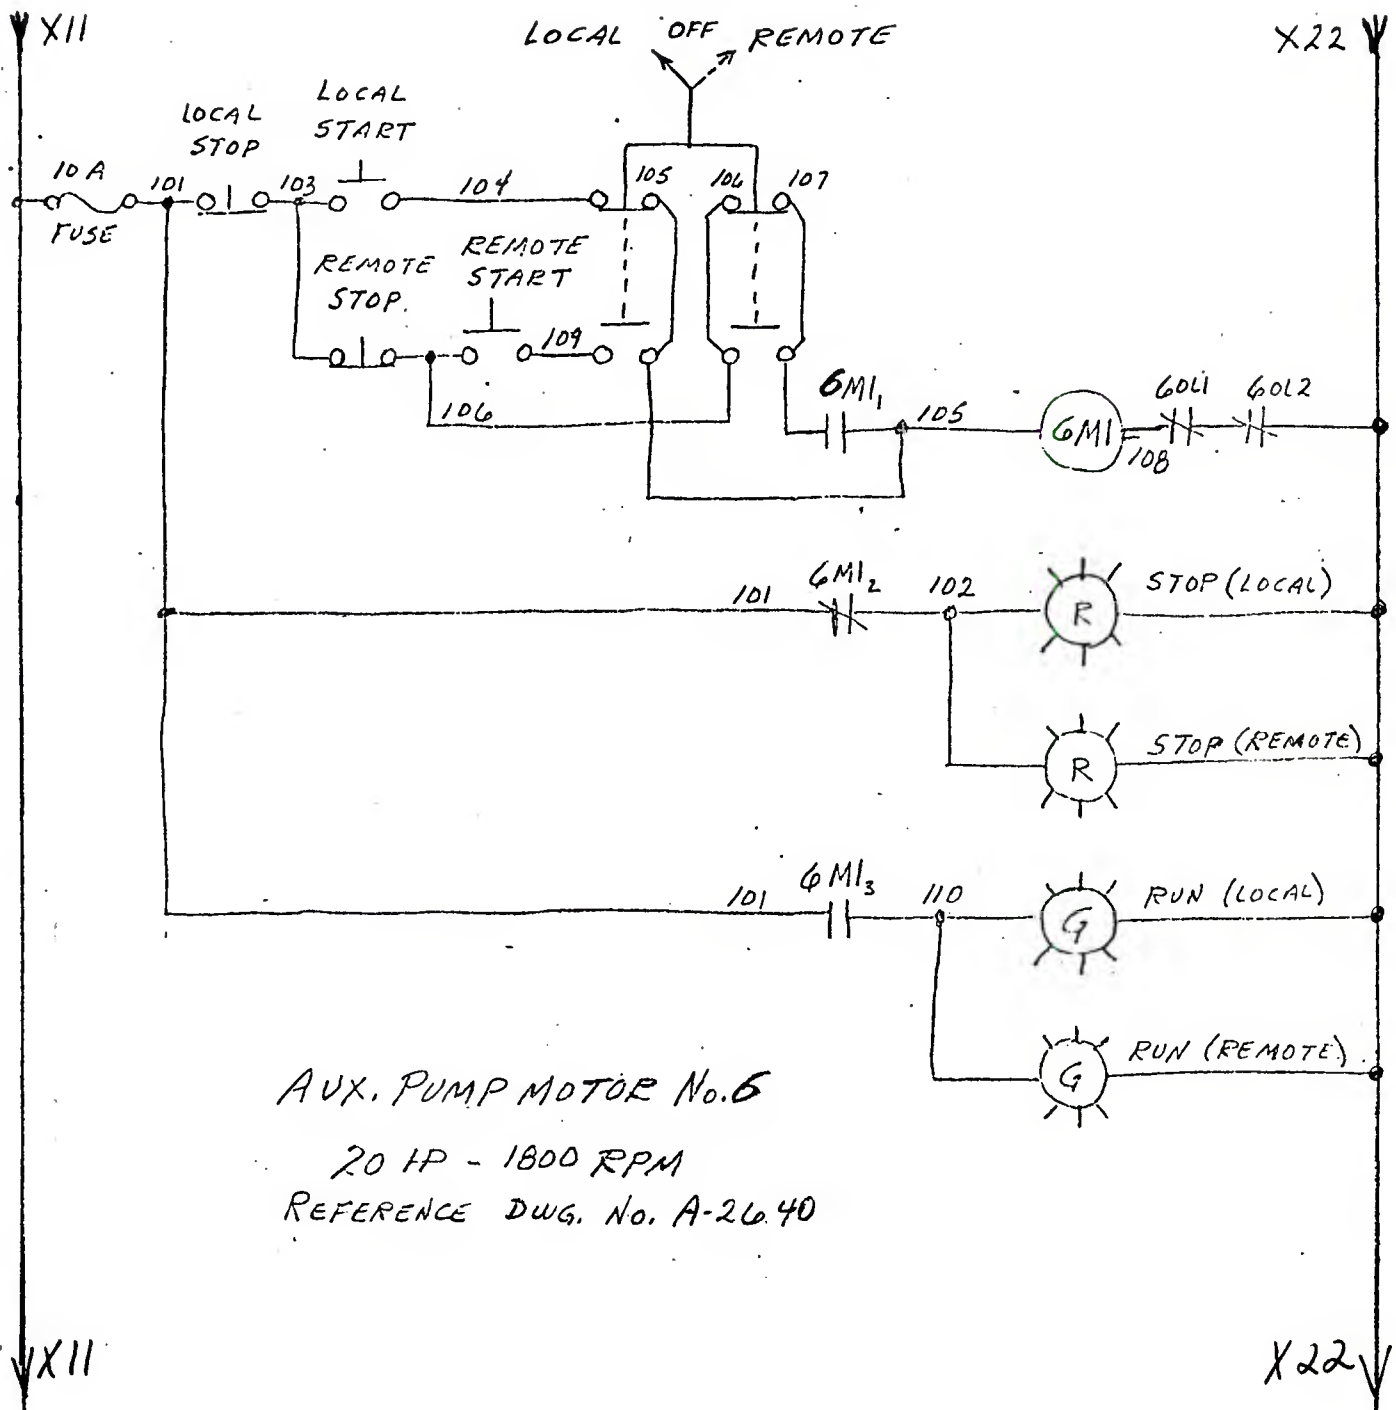 X11
LOCAL OFF REMOTE
X22
LOCAL
STOP
LOCAL
START
10 A
FUSE
101
103
104
105
106
107
REMOTE
STOP.
REMOTE
START
109
106
6M1₁
105
6M1
108
6OL1
6OL2
101
6M1₂
102
R
STOP (LOCAL)
R
STOP (REMOTE)
101
6M1₃
110
G
RUN (LOCAL)
G
RUN (REMOTE)
AUX. PUMP MOTOR No. 6
20 HP - 1800 RPM
REFERENCE DWG. No. A-2640
X11
X22